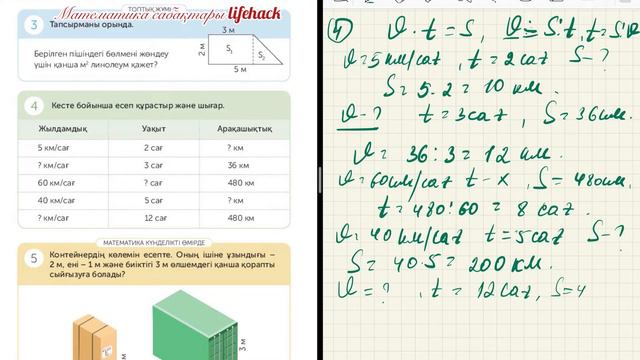 ТОПТЫҚ ЖҰМЫС
Математика сабақтары lifehack
3 Тапсырманы орында.
3 м
Берілген пішіндегі бөлмені жөндеу
үшін қанша м² линолеум қажет?
2 м
S₁
S₂
5 м
4 Кесте бойынша есеп құрастыр және шығар.
Жылдамдық Уақыт Арақашықтық
5 км/сағ 2 сағ ? км
? км/сағ 3 сағ 36 км
60 км/сағ ? сағ 480 км
40 км/сағ 5 сағ ? км
? км/сағ 12 сағ 480 км
МАТЕМАТИКА КҮНДЕЛІКТІ ӨМІРДЕ
5 Контейнердің көлемін есепте. Оның ішіне ұзындығы –
2 м, ені – 1 м және биіктігі 3 м өлшемдегі қанша қорапты
сыйғызуға болады?
3 м
4) v · t = S, v = S:t, t = S:v
v = 5 км/сағ, t = 2 сағ S - ?
S = 5 · 2 = 10 км.
v - ? t = 3 сағ, S = 36 км.
v = 36 : 3 = 12 км.
v = 60 км/сағ t - x, S = 480 км,
t = 480 : 60 = 8 сағ.
v = 40 км/сағ t = 5 сағ S - ?
S = 40 · 5 = 200 км.
v = ?, t = 12 сағ, S = 4